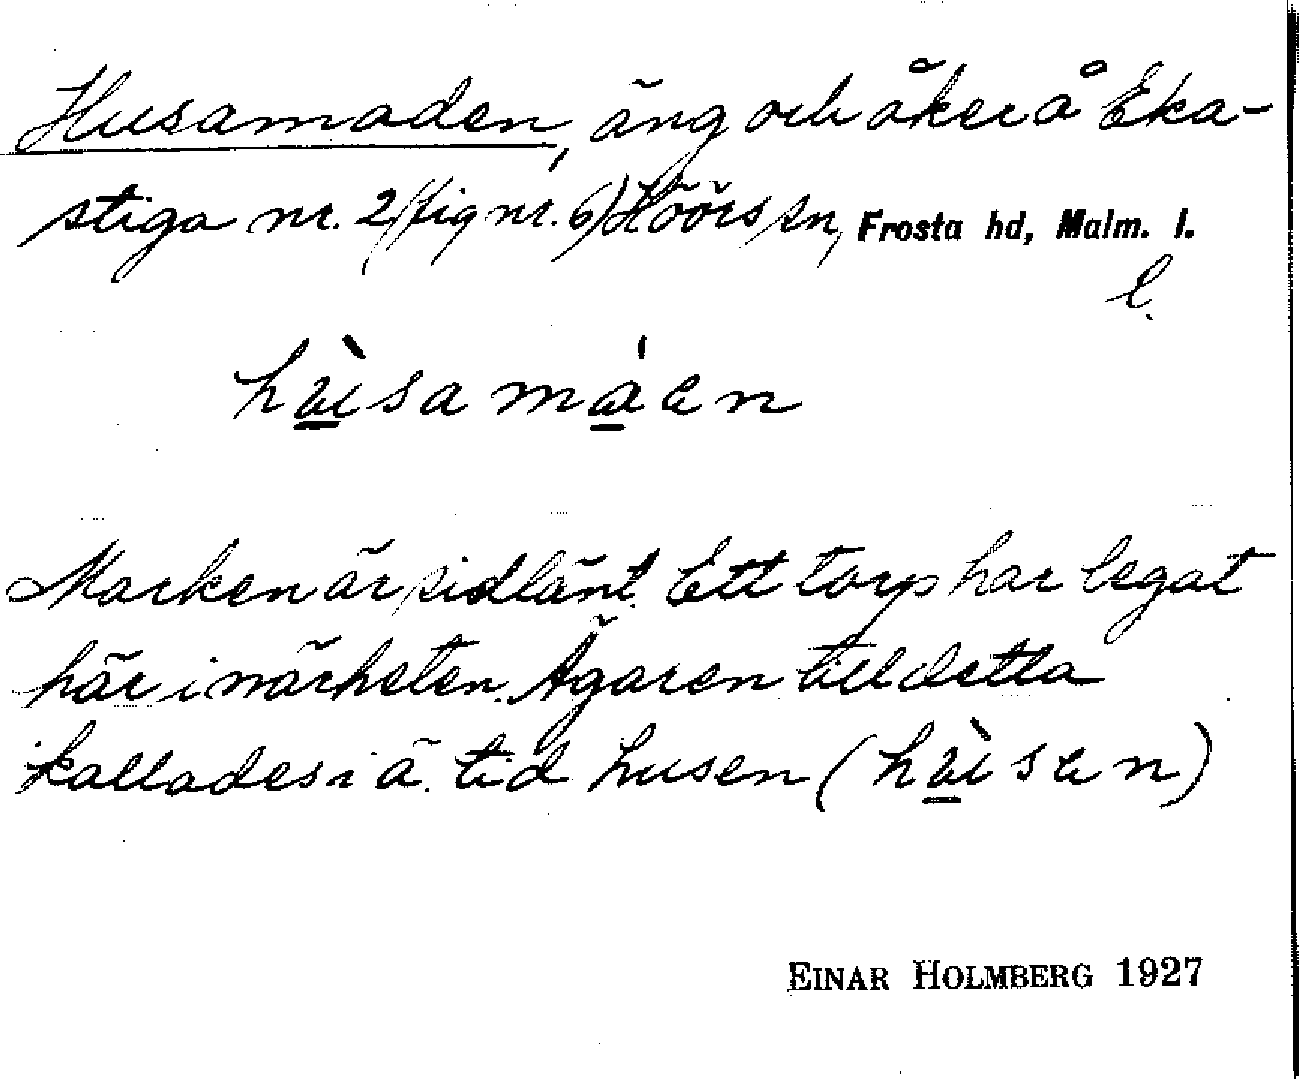 Husamaden, äng och åker å Eka-
stiga nr. 2 (fig nr. 6) Höörs sn, Frosta hd, Malm. l.
l.
hùsa máen
Marken är sidlänt. Ett torp har legat
här i närheten. Ägaren till detta
kallades i ä. tid husen (hùsen)
EINAR HOLMBERG 1927